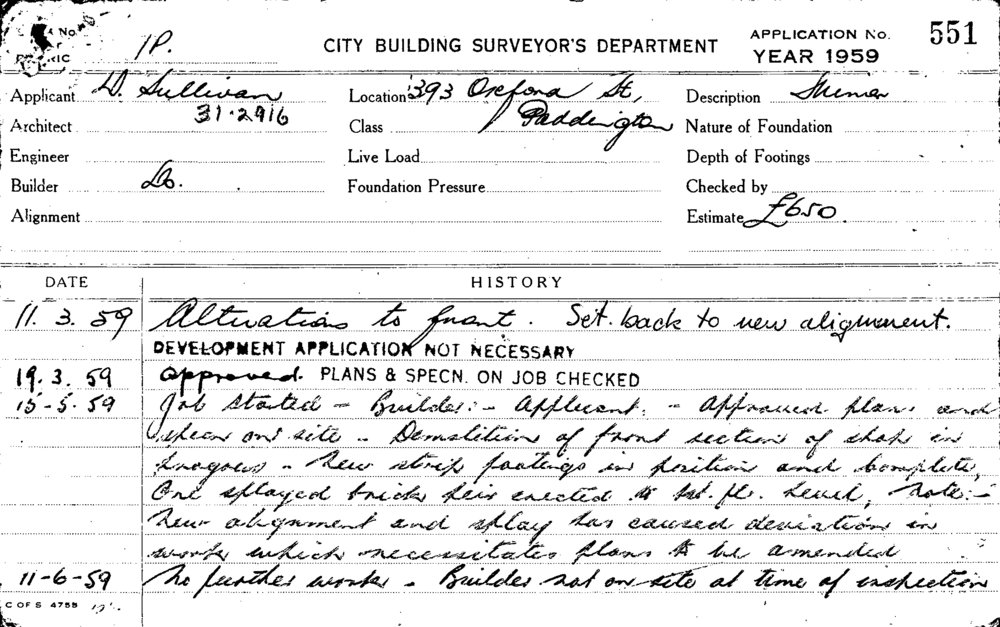 No.
1P.
CITY BUILDING SURVEYOR'S DEPARTMENT
APPLICATION No. 551
YEAR 1959
Applicant D. Sullivan
31·2916
Architect
Engineer
Builder Do.
Alignment
Location 393 Oxford St,
Paddington
Class
Live Load
Foundation Pressure
Description
Nature of Foundation
Depth of Footings
Checked by
Estimate £650.
DATE HISTORY
11. 3. 59 Alterations to front. Set back to new alignment.
DEVELOPMENT APPLICATION NOT NECESSARY
19. 3. 59 Approved. PLANS & SPECN. ON JOB CHECKED
15-5-59 Job started - Builder:- Applicant. - Approved plans and
specn on site - Demolition of front section of shop in
progress - New strip footings in position and complete,
One splayed brick pier erected to 1st. fl. level, Note:-
New alignment and splay has caused deviation in
work which necessitates plans to be amended
11-6-59 No further work - Builder not on site at time of inspection
C OF S 4755